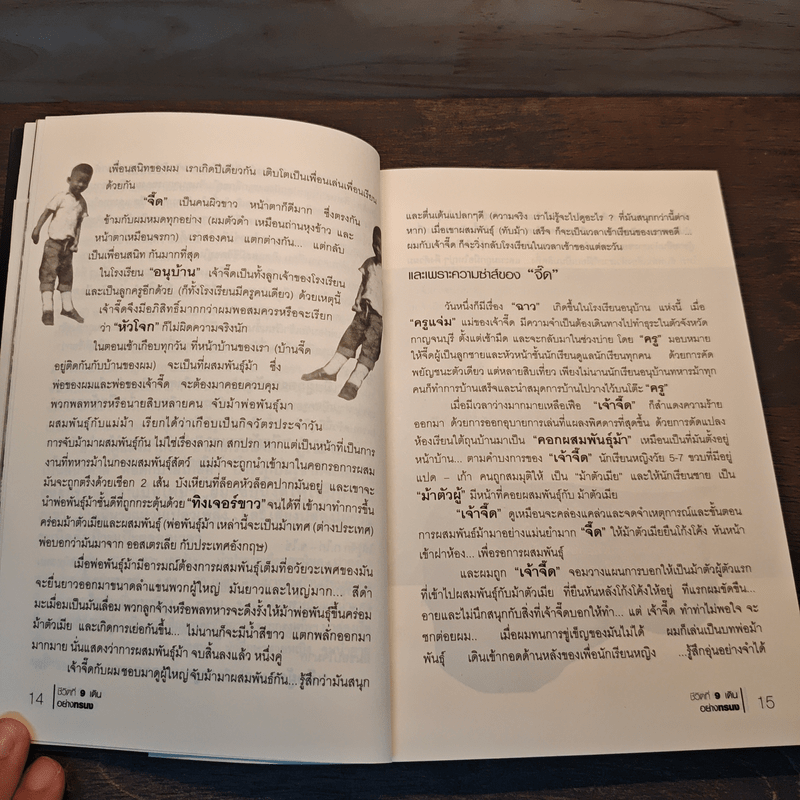 เพื่อนสนิทของผม เราเกิดปีเดียวกัน เติบโตเป็นเพื่อนเล่นเพื่อนเรียน
ด้วยกัน
"จี๊ด" เป็นคนผิวขาว หน้าตาก็ดีมาก ซึ่งตรงกัน
ข้ามกับผมหมดทุกอย่าง (ผมตัวดำ เหมือนถ่านหุงข้าว และ
หน้าตาเหมือนจรกา) เราสองคน แตกต่างกัน... แต่กลับ
เป็นเพื่อนสนิท กันมากที่สุด
ในโรงเรียน "อนุบ้าน" เจ้าจี๊ดเป็นทั้งลูกเจ้าของโรงเรียน
และเป็นลูกครูอีกด้วย (ก็ทั้งโรงเรียนมีครูคนเดียว) ด้วยเหตุนี้
เจ้าจี๊ดจึงมีอภิสิทธิ์มากกว่าผมพอสมควรหรือจะเรียก
ว่า "หัวโจก" ก็ไม่ผิดความจริงนัก
ในตอนเช้าเกือบทุกวัน ที่หน้าบ้านของเรา (บ้านจี๊ด
อยู่ติดกันกับบ้านของผม) จะเป็นที่ผสมพันธุ์ม้า ซึ่ง
พ่อของผมและพ่อของเจ้าจี๊ด จะต้องมาคอยควบคุม
พวกพลทหารหรือนายสิบหลายคน จับม้าพ่อพันธุ์มา
ผสมพันธุ์กับแม่ม้า เรียกได้ว่าเกือบเป็นกิจวัตรประจำวัน
การจับม้ามาผสมพันธุ์กัน ไม่ใช่เรื่องลามก สกปรก หากแต่เป็นหน้าที่เป็นการ
งานที่ทหารม้าในกองผสมพันธุ์สัตว์ แม่ม้าจะถูกนำเข้ามาในคอกรอการผสม
มันจะถูกตรึงด้วยเชือก 2 เส้น บังเหียนที่ล็อคหัวล็อคปากมันอยู่ และเขาจะ
นำพ่อพันธุ์ม้าชั้นดีที่ถูกกระตุ้นด้วย "ทิงเจอร์ขาว" จนได้ที่ เข้ามาทำการขึ้น
คร่อมม้าตัวเมียและผสมพันธุ์ (พ่อพันธุ์ม้า เหล่านี้จะเป็นม้าเทศ (ต่างประเทศ)
พ่อบอกว่ามันมาจาก ออสเตรเลีย กับประเทศอังกฤษ)
เมื่อพ่อพันธุ์ม้ามีอารมณ์ต้องการผสมพันธุ์เต็มที่อวัยวะเพศของมัน
จะยื่นยาวออกมาขนาดลำแขนพวกผู้ใหญ่ มันยาวและใหญ่มาก... สีดำ
มะเมื่อมเป็นมันเลื่อม พวกลูกจ้างหรือพลทหารจะดึงรั้งให้ม้าพ่อพันธุ์ขึ้นคร่อม
ม้าตัวเมีย และเกิดการเย่อกันขึ้น... ไม่นานก็จะมีน้ำสีขาว แตกพลั่กออกมา
มากมาย นั่นแสดงว่าการผสมพันธุ์ม้า จบสิ้นลงแล้ว หนึ่งคู่
เจ้าจี๊ดกับผมชอบมาดูผู้ใหญ่ จับม้ามาผสมพันธุ์กัน... รู้สึกว่ามันสนุก
14 ชีวิตที่ 9 เดิน
อย่างทรนง
และตื่นเต้นแปลกๆดี (ความจริง เราไม่รู้จะไปดูอะไร ? ที่มันสนุกกว่านี้ต่าง
หาก) เมื่อเขาผสมพันธุ์ (ทับม้า) เสร็จ ก็จะเป็นเวลาเข้าเรียนของเราพอดี ...
ผมกับเจ้าจี๊ด ก็จะวิ่งกลับโรงเรียนในเวลาเช้าของแต่ละวัน
และเพราะความซ่าส์ของ "จี๊ด"
วันหนึ่งก็มีเรื่อง "ฉาว" เกิดขึ้นในโรงเรียนอนุบ้าน แห่งนี้ เมื่อ
"ครูแจ่ม" แม่ของเจ้าจี๊ด มีความจำเป็นต้องเดินทางไปทำธุระในตัวจังหวัด
กาญจนบุรี ตั้งแต่เช้ามืด และจะกลับมาในช่วงบ่าย โดย "ครู" มอบหมาย
ให้จี๊ดผู้เป็นลูกชายและหัวหน้าชั้นนักเรียนดูแลนักเรียนทุกคน ด้วยการคัด
พยัญชนะตัวเดียว แต่หลายสิบเที่ยว เพียงไม่นานนักเรียนอนุบ้านทหารม้าทุก
คนก็ทำการบ้านเสร็จและนำสมุดการบ้านไปวางไว้บนโต๊ะ "ครู"
เมื่อมีเวลาว่างมากมายเหลือเฟือ "เจ้าจี๊ด" ก็สำแดงความร้าย
ออกมา ด้วยการออกอุบายการเล่นที่แผลงพิศดารที่สุดขึ้น ด้วยการดัดแปลง
ห้องเรียนใต้ถุนบ้านมาเป็น "คอกผสมพันธุ์ม้า" เหมือนเป็นที่มันตั้งอยู่
หน้าบ้าน... ตามคำบงการของ "เจ้าจี๊ด" นักเรียนหญิงวัย 5-7 ขวบที่มีอยู่
แปด – เก้า คนถูกสมมุติให้ เป็น "ม้าตัวเมีย" และให้นักเรียนชาย เป็น
"ม้าตัวผู้" มีหน้าที่คอยผสมพันธุ์กับ ม้าตัวเมีย
"เจ้าจี๊ด" ดูเหมือนจะคล่องแคล่วและจดจำเหตุการณ์และขั้นตอน
การผสมพันธุ์ม้ามาอย่างแม่นยำมาก "จี๊ด" ให้ม้าตัวเมียยืนโก้งโค้ง หันหน้า
เข้าฝาห้อง... เพื่อรอการผสมพันธุ์
และผมถูก "เจ้าจี๊ด" จอมวางแผนการบอกให้เป็นม้าตัวผู้ตัวแรก
ที่เข้าไปผสมพันธุ์กับม้าตัวเมีย ที่ยืนหันหลังโก้งโค้งให้อยู่ ที่แรกผมขัดขืน...
อายและไม่นึกสนุกกับสิ่งที่เจ้าจี๊ดบอกให้ทำ... แต่ เจ้าจี๊ด ทำท่าไม่พอใจ จะ
ชกต่อยผม.. เมื่อผมทนการขู่เข็ญของมันไม่ได้ ผมก็เล่นเป็นบทพ่อม้า
พันธุ์ เดินเข้ากอดด้านหลังของเพื่อนักเรียนหญิง ...รู้สึกอุ่นอย่างจำได้
ชีวิตที่ 9 เดิน
อย่างทรนง 15